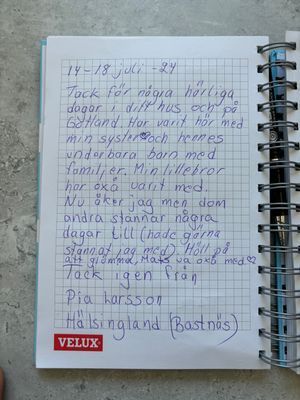 14-18 juli -24
Tack för några härliga
dagar i ditt hus och på
Gotland. Har varit här med
min syster och hennes
underbara barn med
familjer. Min lillebror
har oxå varit med.
Nu åker jag men dom
andra stannar några
dagar till (hade gärna
stannat jag med). Höll på
att glömma, Mats va oxå med
Tack igen från
Pia Larsson
Hälsingland (Bastnäs)
VELUX